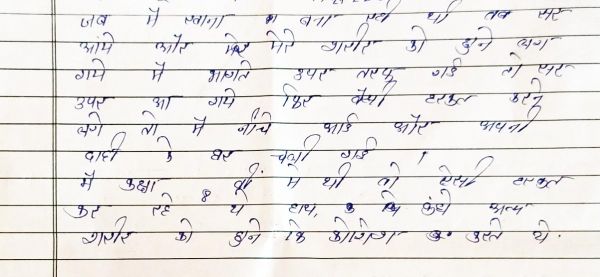 जब मैं खाना बना रही थी तब सर
आये और मेरे शरीर को छुने लग
गये मैं भागते उपर तरफ गई तो सर
उपर आ गये फिर वैसी हरकत करने
लगे तो मैं नीचे आई और अपनी
दादी के घर चली गई ।
मैं कक्षा 8 वीं में थी तो ऐसी हरकत
कर रहे थे हाथ, कंधे अन्य
शरीर को छुने कि कोशिश करते थे.